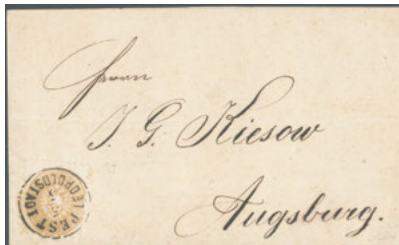 Herrn
J. G. Kiesow
Augsburg.
PEST
LEOPOLDSTADT